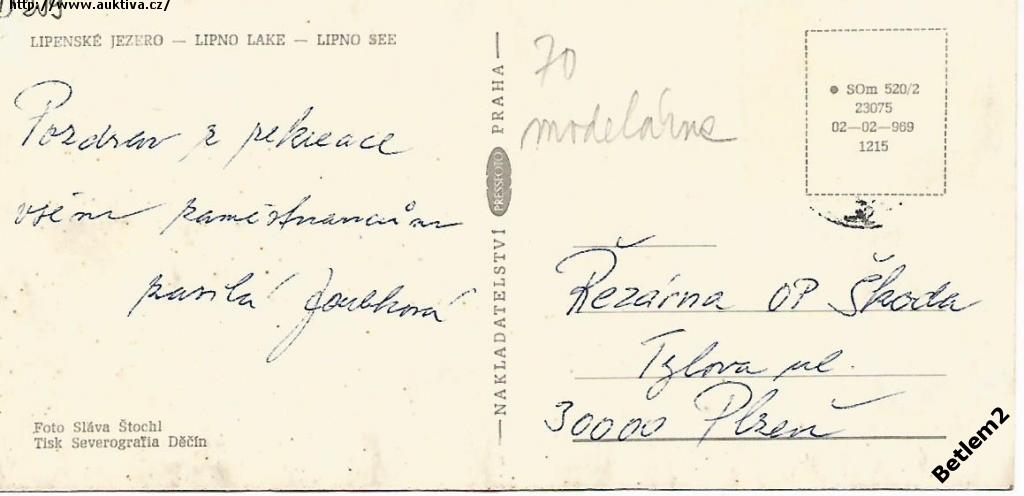 http://www.auktiva.cz/
LIPENSKÉ JEZERO — LIPNO LAKE — LIPNO SEE
Pozdrav z rekreace
všem zaměstnancům
zasílá
Foto Sláva Štochl
Tisk Severografia Děčín
—NAKLADATELSTVÍ PRESSFOTO PRAHA—
70
modelárna
● SOm 520/2
23075
02—02—969
1215
Řezárna OP Škoda
Tylova ul.
30000 Plzeň
Betlem2